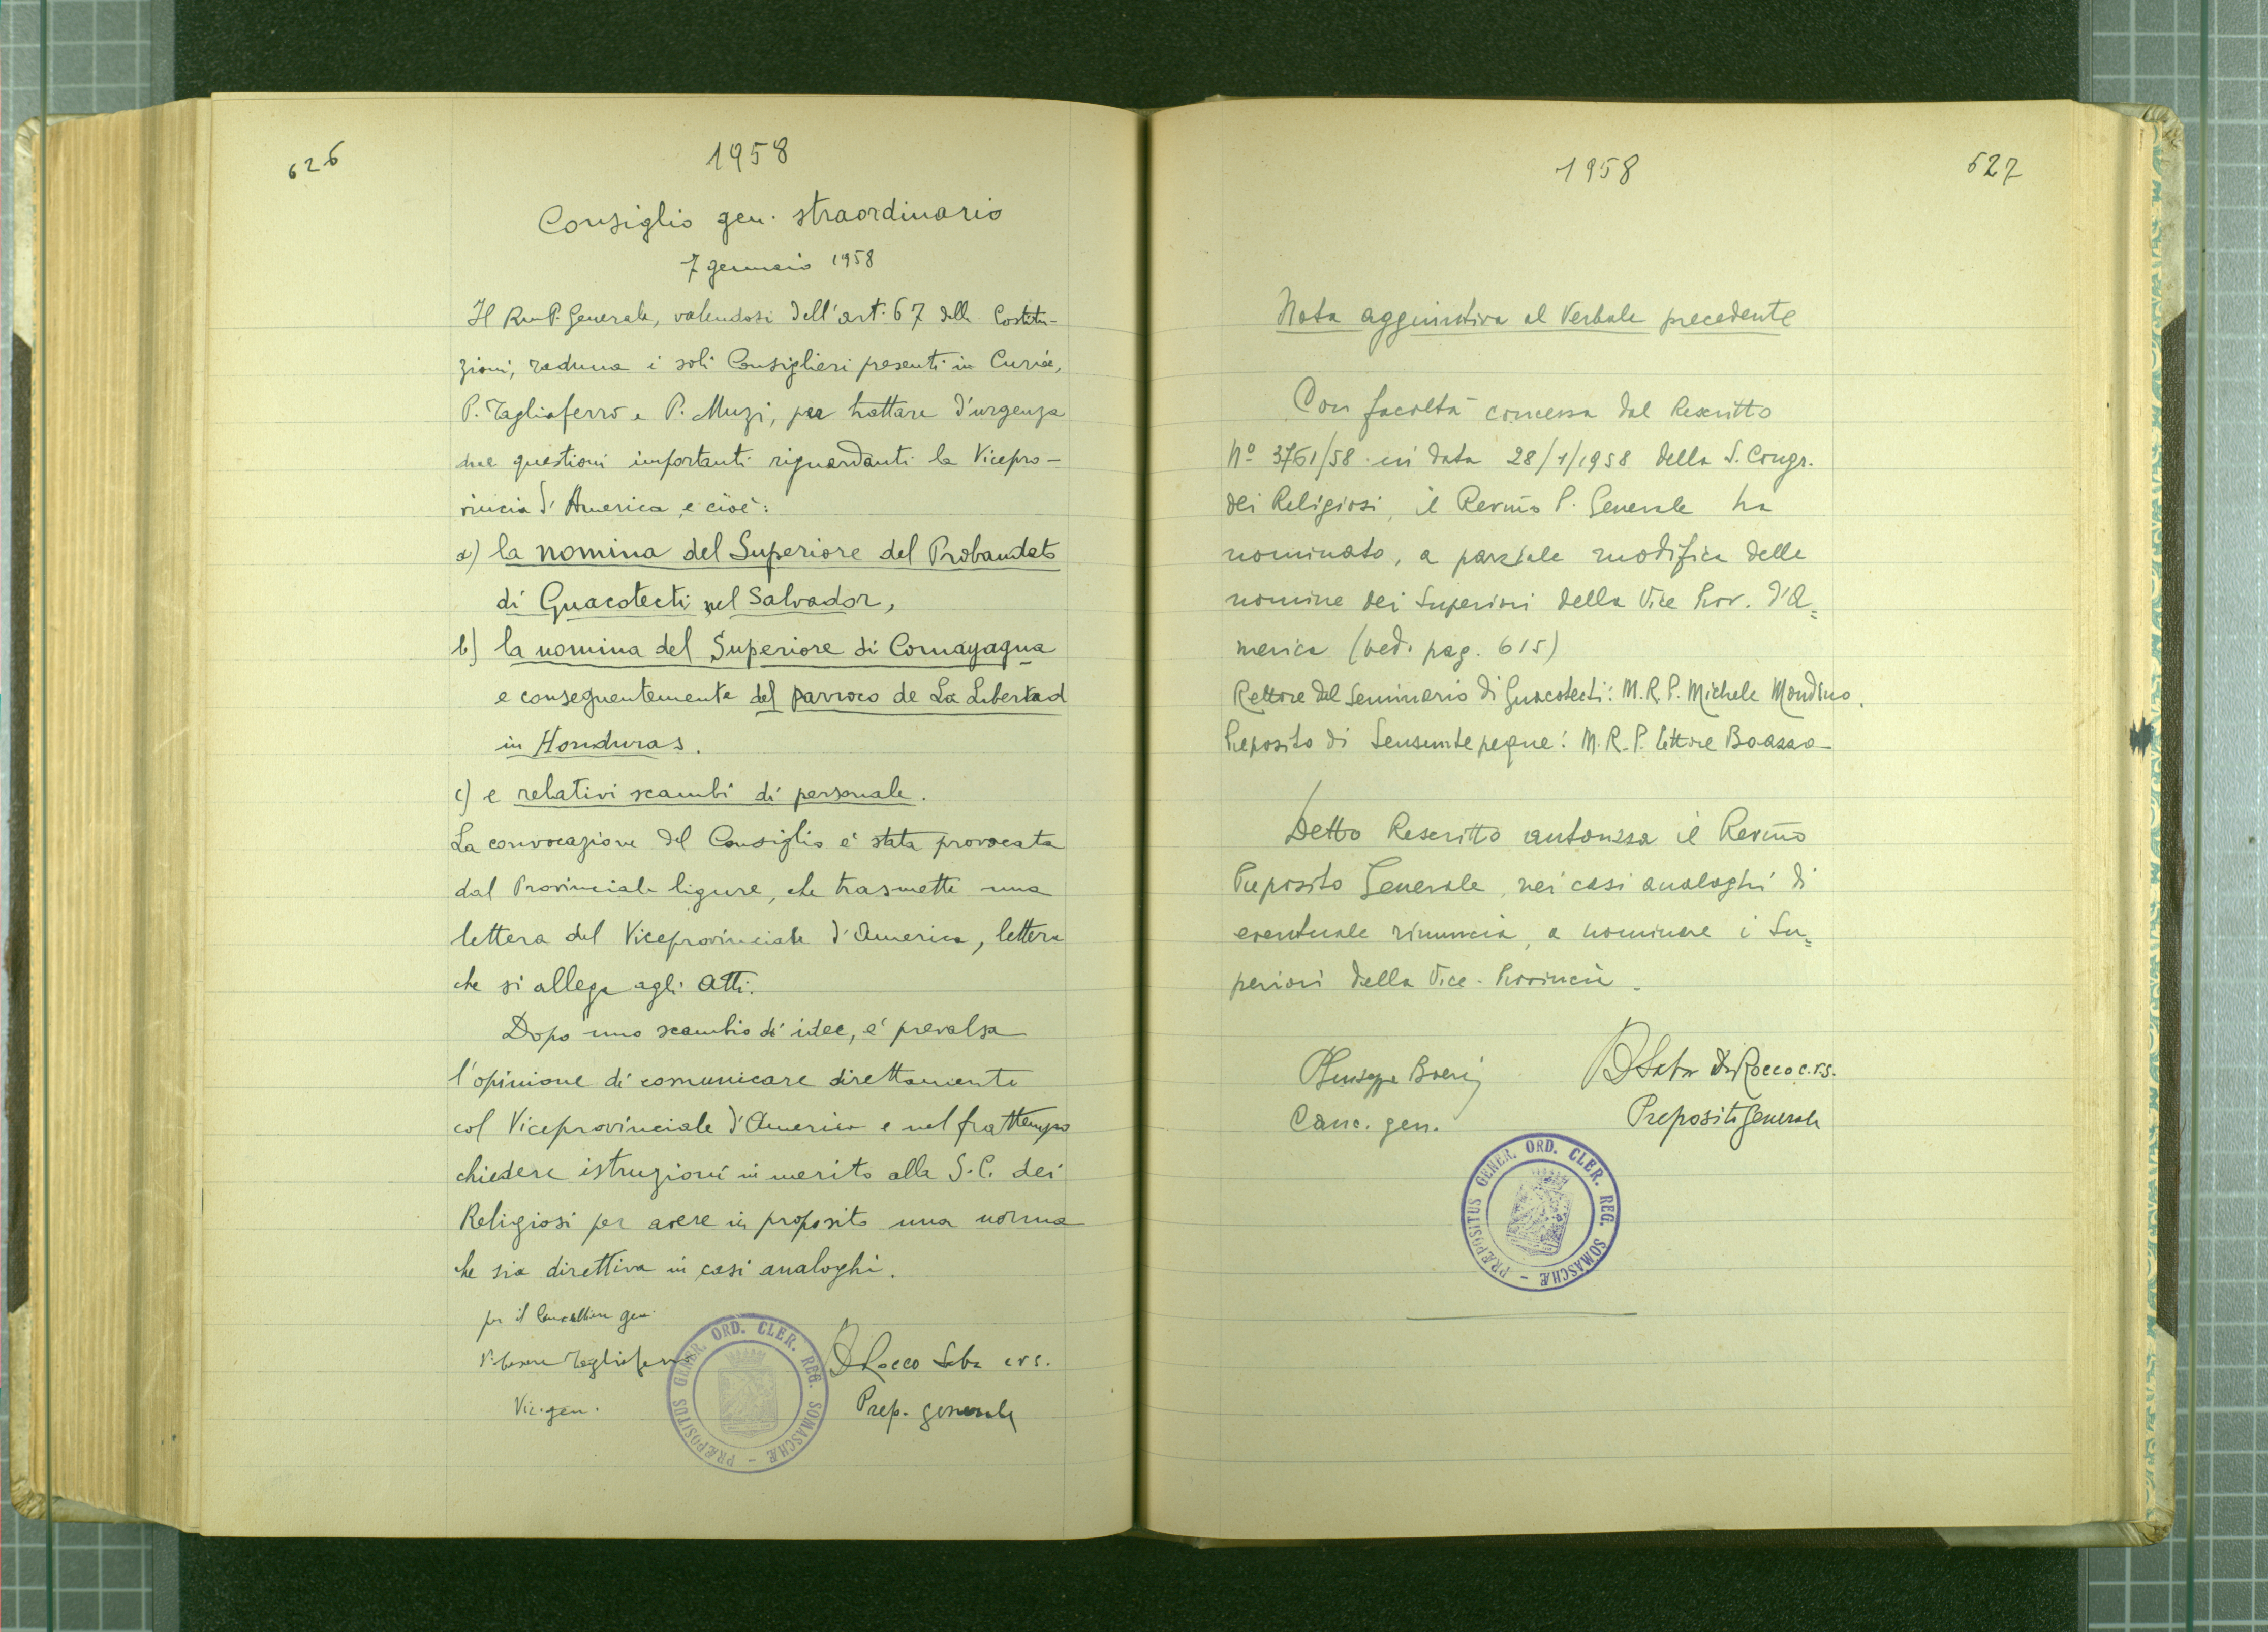 626
1958
Consiglio gen. straordinario
7 gennaio 1958
Il Rm P. Generale, valendosi dell'art. 67 delle Costitu-
zioni, raduna i soli Consiglieri presenti in Curia,
P. Tagliaferro e P. Muzi, per trattare d'urgenza
due questioni importanti riguardanti la Vicepro-
vincia d'America, e cioè:
a) la nomina del Superiore del Probandato
di Guacotecti nel Salvador,
b) la nomina del Superiore di Comayagua
e conseguentemente del parroco de La Libertad
in Honduras.
c) e relativi scambi di personale.
La convocazione del Consiglio è stata provocata
dal Provinciale ligure, che trasmette una
lettera del Viceprovinciale d'America, lettera
che si allega agli Atti.
Dopo uno scambio di idee, è prevalsa
l'opinione di comunicare direttamente
col Viceprovinciale d'America e nel frattempo
chiedere istruzioni in merito alla S.C. dei
Religiosi per avere in proposito una norma
che sia direttiva in casi analoghi.
per il Cancelliere gen.
P. Cesare Tagliaferro
D Rocco Saba crs.
Vic. gen.
Prep. generale
PRÆPOSITUS GENER. ORD. CLER. REG. SOMASCHÆ -
1958
627
Nota aggiuntiva al Verbale precedente
Con facoltà concessa dal Rescritto
Nº 3761/58 in data 28/1/1958 della S. Congr.
dei Religiosi, il Revmo P. Generale ha
nominato, a parziale modifica delle
nomine dei Superiori della Vice Prov. d'A=
merica (ved. pag. 615)
Rettore del Seminario di Guacotecti: M.R.P. Michele Mondino.
Preposito di Sensuntepeque: M.R.P. Ettore Boazzo
Detto Rescritto autorizza il Revmo
Preposito Generale, nei casi analoghi di
eventuale rinuncia, a nominare i Su=
periori della Vice-Provincia.
P Giuseppe Boeri
D Saba De Rocco c.r.s.
Canc. gen.
Preposito Generale
PRÆPOSITUS GENER. ORD. CLER. REG. SOMASCHÆ -